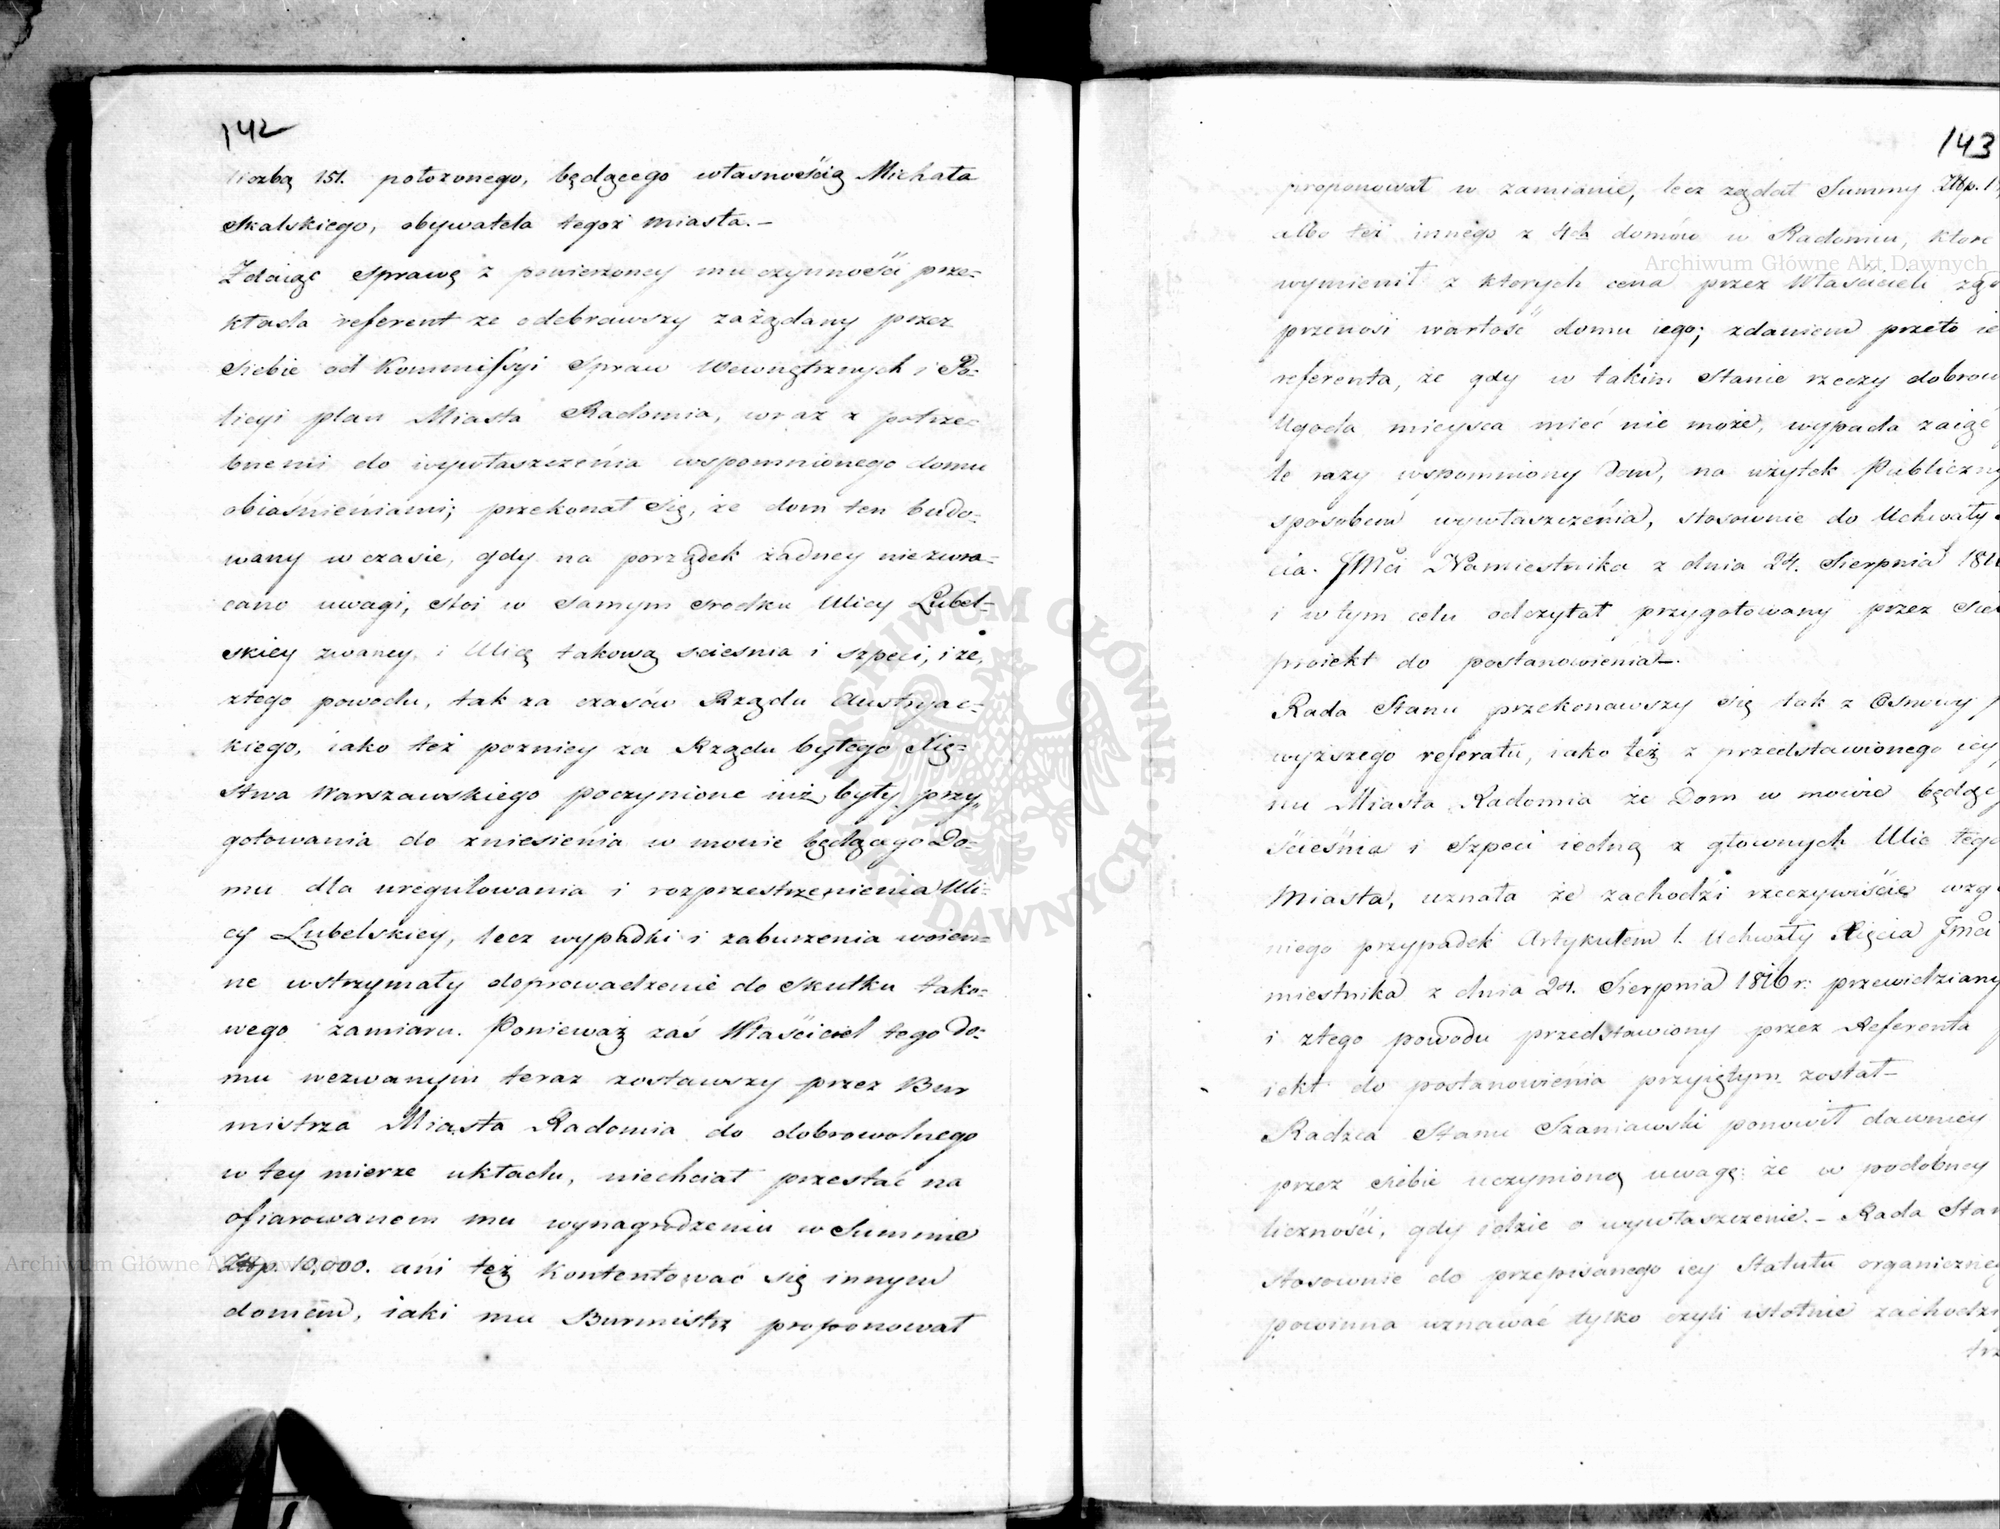 142
liczbą 151. położonego, będącego własnością Michała
Skalskiego, obywatela tegoż miasta.—
Zdaiąc sprawę z powierzoney mu czynności prze-
kłada referent że odebrawszy zażądany przez
siebie od Kommissyi Spraw Wewnętrznych i Po-
licyi plan Miasta Radomia, wraz z potrze-
bnemi do wywłaszczenia wspomnionego domu
obiaśnieniami; przekonał się, że dom ten budo-
wany w czasie, gdy na porządek żadney niezwra-
cano uwagi, stoi w samym srodku Ulicy Lubel-
skiey zwaney, i Ulicę takową scieśnia i szpeci, i że,
ztego powodu, tak za czasów Rządu Austryac-
kiego, iako też pozniey za Rządu byłego Xię-
stwa Warszawskiego poczynione iuż były przy-
gotowania do zniesienia w mowie będącego Do-
mu dla uregulowania i rozprzestrzenienia Uli-
cy Lubelskiey, lecz wypadki i zaburzenia woien-
ne wstrzymały doprowadzenie do skutku tako-
wego zamiaru. Ponieważ zaś Właściciel tego Do-
mu wezwanym teraz zostawszy przez Bur
mistrza Miasta Radomia do dobrowolnego
w tey mierze układu, niechciał przestać na
ofiarowanem mu wynagrodzeniu w Summie
Złłp. 10,000. ani też kontentować się innym
domem, iaki mu Burmistrz proponował
143
proponował w zamianie, lecz żądał Summy Złłp. 1
albo też innego z 4ch domów w Radomiu, które
wymienił z których cena przez Właścicieli
przenosi wartość domu iego; zdaniem przeto ie
referenta, że gdy w takim stanie rzeczy dobrow
Ugoda mieysca mieć nie może, wypada zaiąć
te razy wspomniony Dom, na użytek Publiczny
sposobem wywłaszczenia, stosownie do Uchwały
cia JMci Namiestnika z dnia 24. Sierpnia 181
i w tym celu odczytał przygotowany przez sie
proiekt do postanowienia—.
Rada Stanu przekonawszy się tak z Osnowy
wyższego referatu, iako też z przedstawionego iey
nu Miasta Radomia że Dom w mowie będący
ścieśnia i szpeci iedną z głownych Ulic tego
Miasta, uznała że zachodzi rzeczywiście
niego przypadek Artykułem 1. Uchwały Xięcia Jmci
miestnika z dnia 24. Sierpnia 1816 r: przewidziany
i ztego powodu przedstawiony przez Referenta
iekt do postanowienia przyiętym został—
Radzca Stanu Szaniawski ponowił dawniey
przez siebie uczynioną uwagę: że w podobney
liczności, gdy idzie o wywłaszczenie.— Rada Stan
stosownie do przepisanego iey Statutu organiczneg
powinna uznawać tylko czyli istotnie zachodzi
trz
Archiwum Główne Akt Dawnych
Archiwum Główne Akt Dawnych
ARCHIWUM GŁÓWNE AKT DAWNYCH